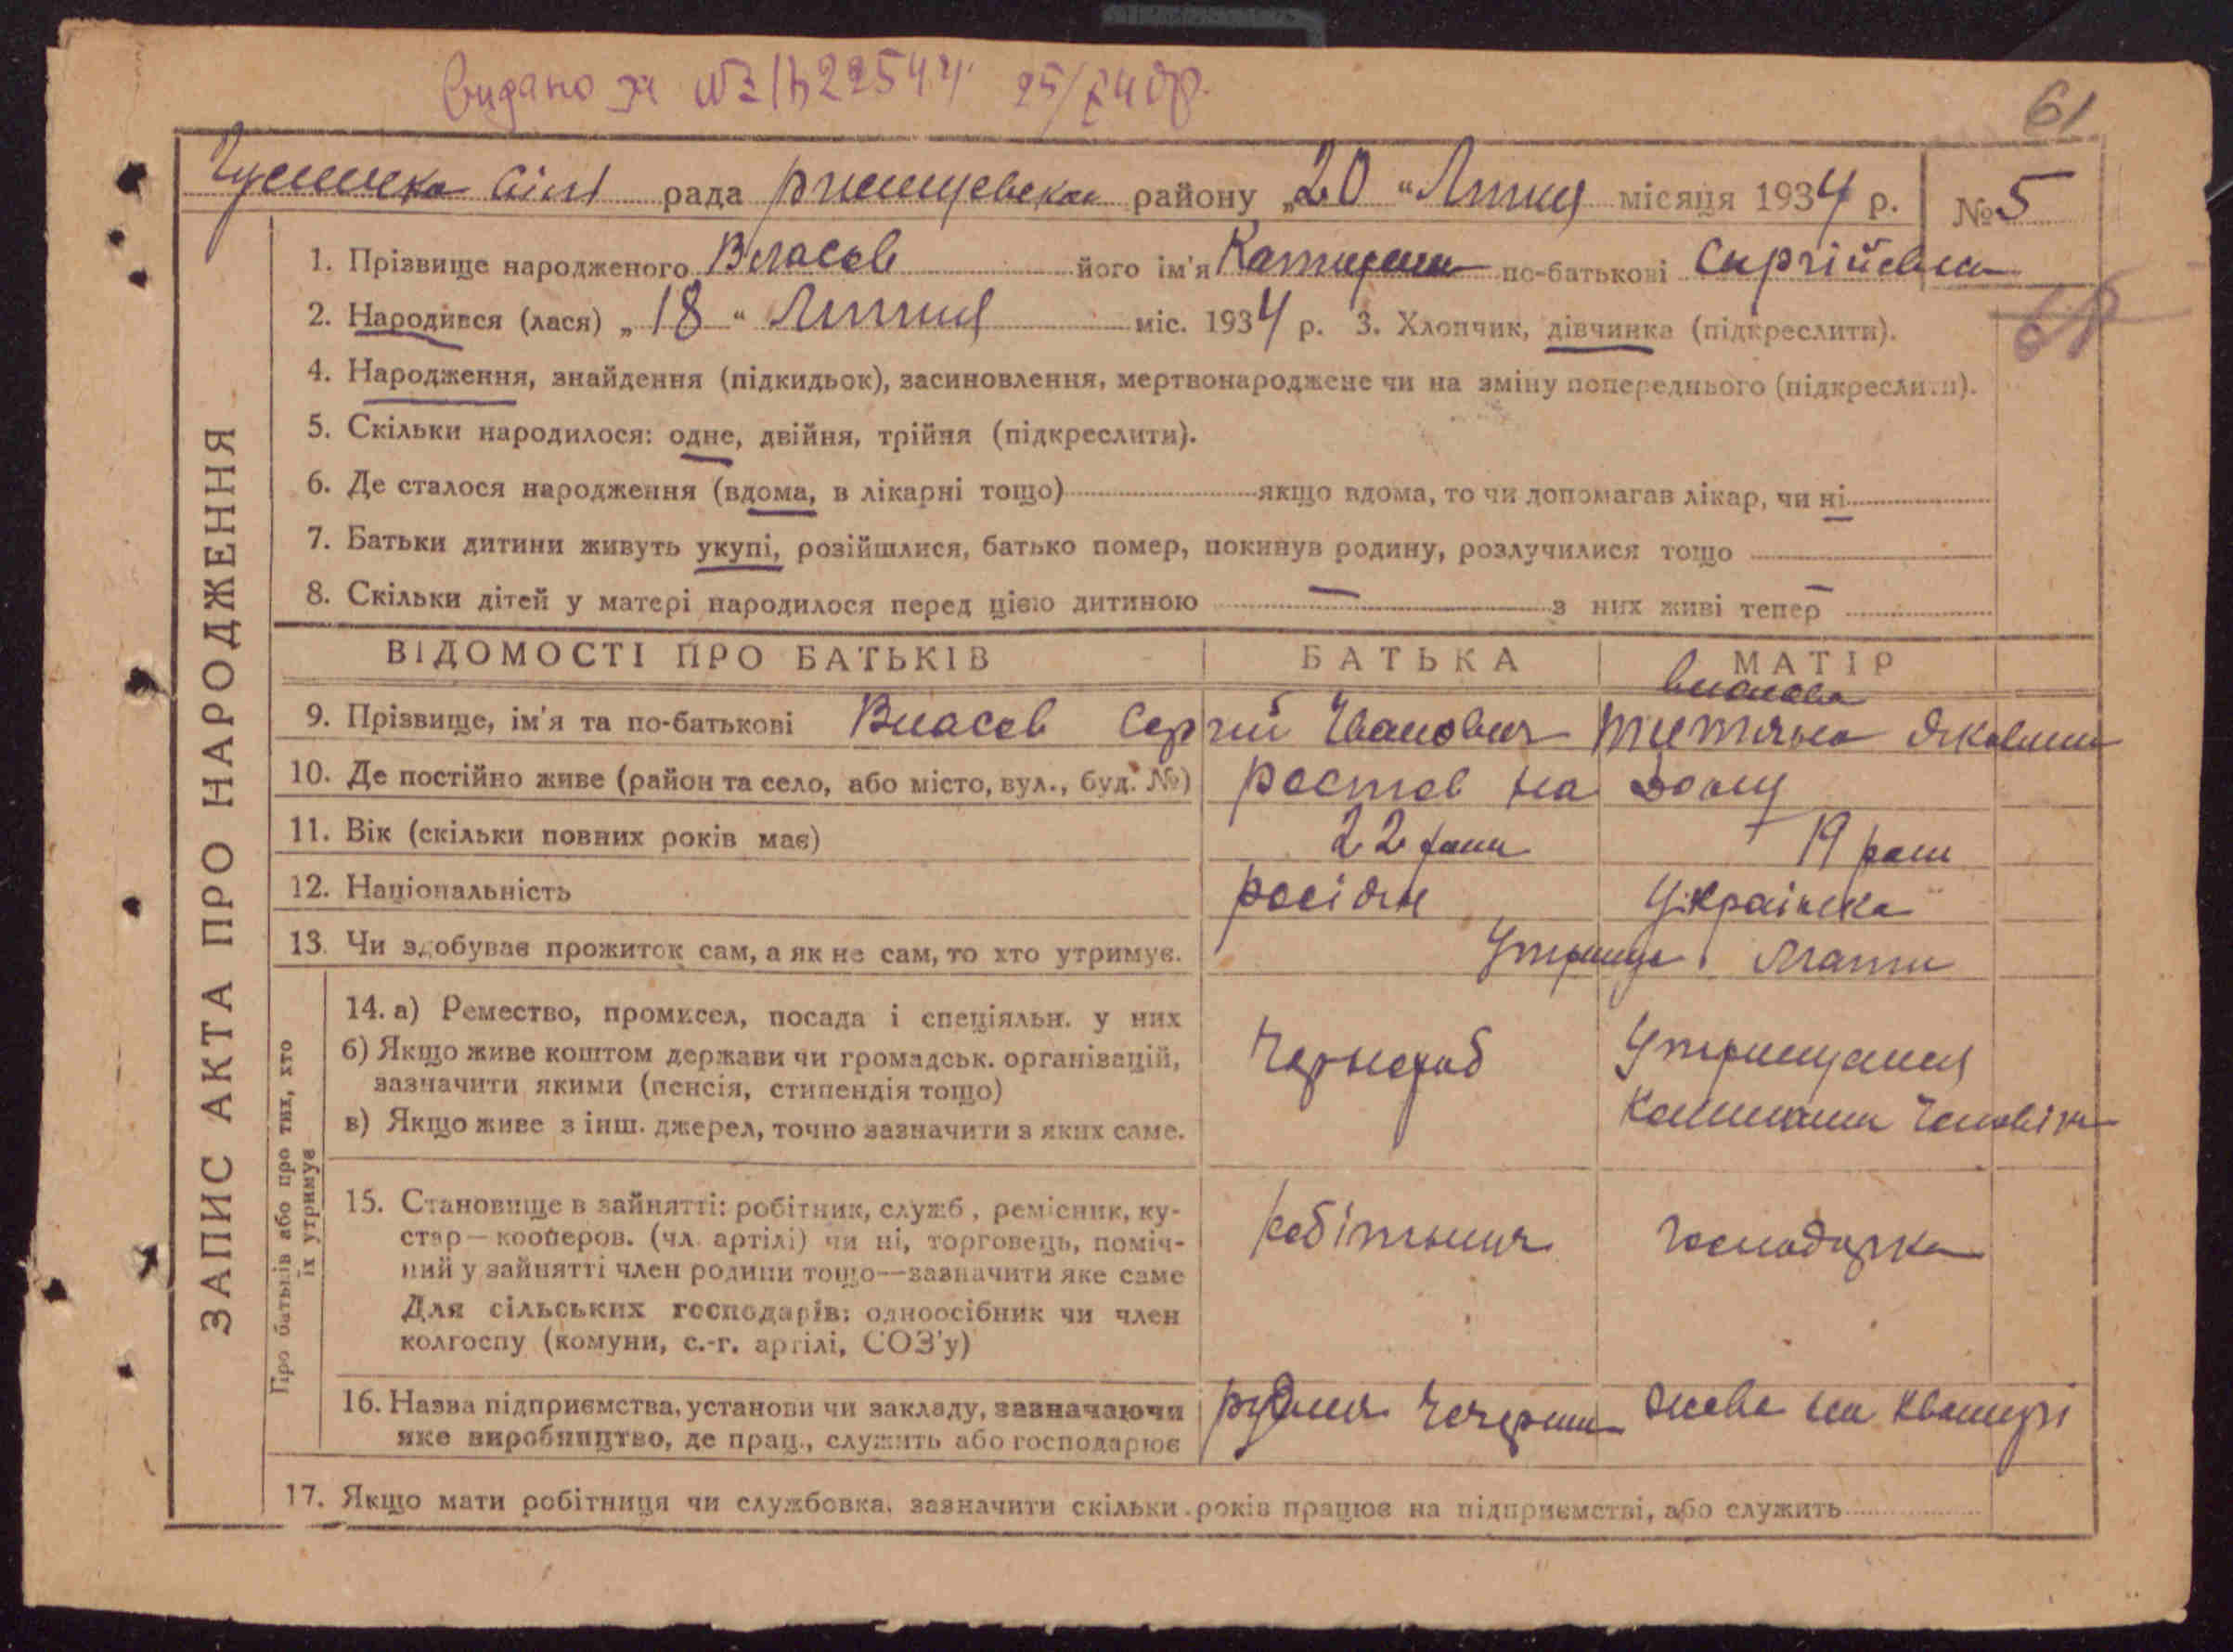 Видано за № 22544 25/
61
сіль рада району „20“ Липня місяця 1934 р. № 5
1. Прізвище народженого Власов його ім'я Катерина по-батькові Сиргійевна
61
2. Народився (лася) „18“ Липня міс. 1934 р. 3. Хлопчик, дівчинка (підкреслити).
4. Народження, знайдення (підкидьок), засиновлення, мертвонароджене чи на зміну попереднього (підкреслити).
5. Скільки народилося: одне, двійня, трійня (підкреслити).
6. Де сталося народження (вдома, в лікарні тощо) якщо вдома, то чи допомагав лікар, чи ні
7. Батьки дитини живуть укупі, розійшлися, батько помер, покинув родину, розлучилися тощо
8. Скільки дітей у матері народилося перед цією дитиною — з них живі тепер —
ВІДОМОСТІ ПРО БАТЬКІВ БАТЬКА МАТІР
9. Прізвище, ім'я та по-батькові Власов Сергій Іванович Власова Титяна Яковлина
10. Де постійно живе (район та село, або місто, вул., буд. №) Ростов на Дону
11. Вік (скільки повних років має) 22 роки 19 роки
12. Національність росіян Українка
13. Чи здобуває прожиток сам, а як не сам, то хто утримує. Утримує Мати
ЗАПИС АКТА ПРО НАРОДЖЕННЯ
Про батьків або про тих, хто їх утримує
14. а) Ремество, промисел, посада і спеціяльн. у них
б) Якщо живе коштом держави чи громадськ. організацій,
зазначити якими (пенсія, стипендія тощо)
в) Якщо живе з інш. джерел, точно зазначити з яких саме.
Чорнороб
Утримання
коштами чоловіка
15. Становище в зайнятті: робітник, служб., ремісник, ку-
стар—кооперов. (чл. артілі) чи ні, торговець, поміч-
ний у зайнятті член родини тощо—зазначити яке саме
Для сільських господарів: одноосібник чи член
колгоспу (комуни, с.-г. артілі, СОЗ'у)
робітник господарка
16. Назва підприємства, установи чи закладу, зазначаючи
яке виробництво, де прац., служить або господарює
живе на квартирі
17. Якщо мати робітниця чи службовка, зазначити скільки років працює на підприємстві, або служить